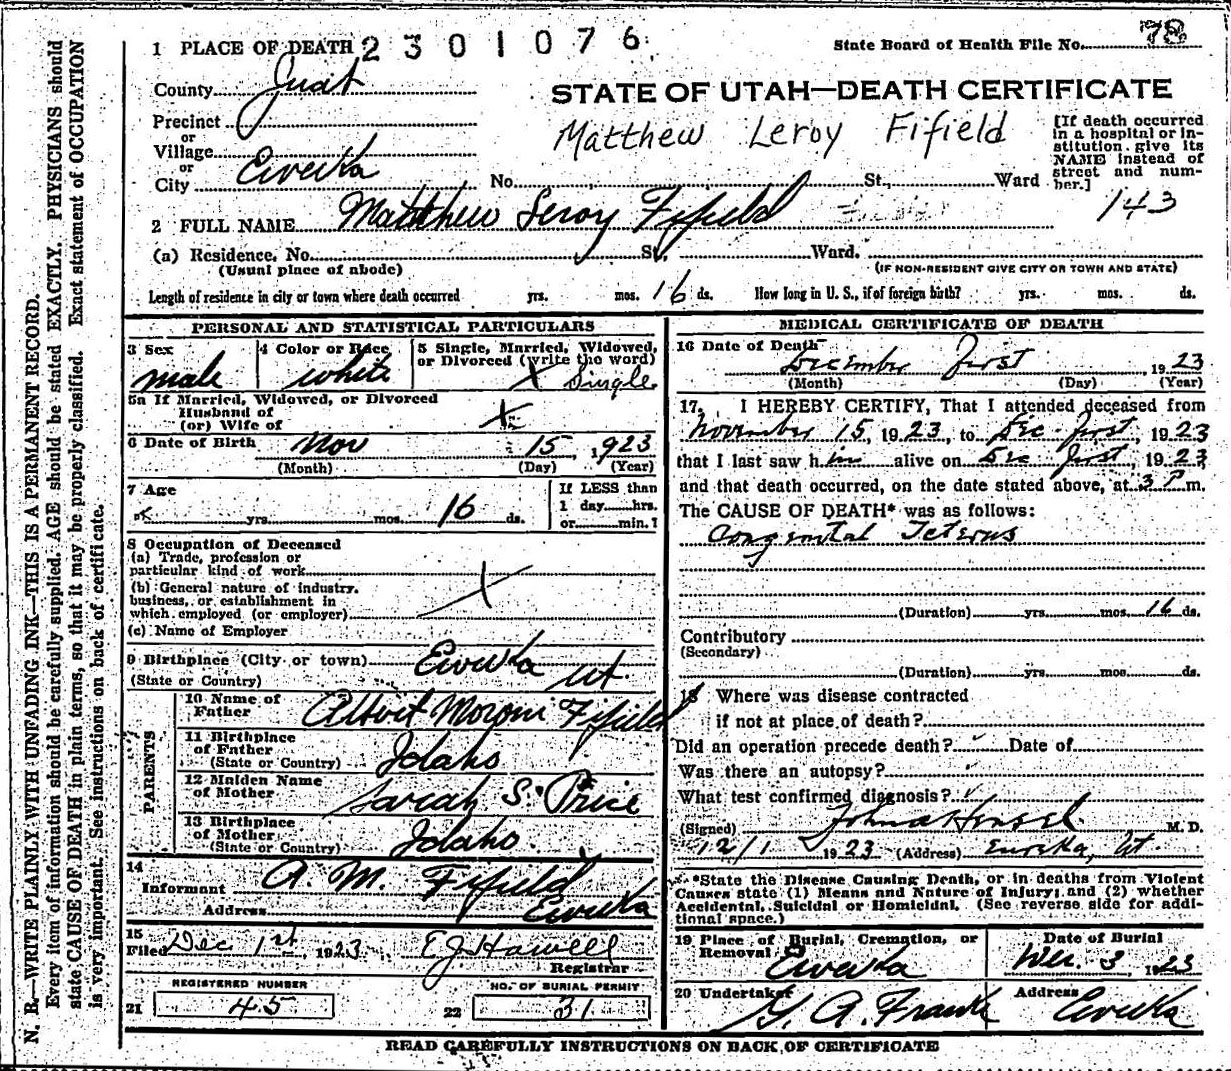 78
1 PLACE OF DEATH 2301076
State Board of Health File No.
County Juab
STATE OF UTAH—DEATH CERTIFICATE
Precinct
or
Village
or
City Eureka
Matthew Leroy Fifield
[If death occurred
in a hospital or in-
stitution give its
NAME instead of
street and num-
ber.]
No. St., Ward
143
2 FULL NAME Matthew Leroy Fifield
(a) Residence. No. St. Ward.
(Usual place of abode)
(IF NON-RESIDENT GIVE CITY OR TOWN AND STATE)
Length of residence in city or town where death occurred yrs. mos. 16 ds. How long in U. S., if of foreign birth? yrs. mos. ds.
PERSONAL AND STATISTICAL PARTICULARS
3 Sex
male
4 Color or Race
white
5 Single, Married, Widowed,
or Divorced (write the word)
X Single
5a If Married, Widowed, or Divorced
Husband of
(or) Wife of
X
6 Date of Birth Nov 15, 1923
(Month) (Day) (Year)
7 Age
yrs. mos. 16 ds.
If LESS than
1 day hrs.
or min.?
8 Occupation of Deceased
(a) Trade, profession or
particular kind of work
(b) General nature of industry,
business, or establishment in
which employed (or employer)
X
(c) Name of Employer
9 Birthplace (City or town) Eureka
(State or Country) Ut
PARENTS
10 Name of
Father Albert Moroni Fifield
11 Birthplace
of Father
(State or Country) Idaho
12 Maiden Name
of Mother Sarah S. Price
13 Birthplace
of Mother
(State or Country) Idaho.
14
Informant A. M. Fifield
Address Eureka
15
Filed Dec 1st, 1923 E J Howell
Registrar
REGISTERED NUMBER
21 45
NO. OF BURIAL PERMIT
22 31
MEDICAL CERTIFICATE OF DEATH
16 Date of Death
December First, 1923
(Month) (Day) (Year)
17. I HEREBY CERTIFY, That I attended deceased from
November 15, 1923, to Dec first, 1923
that I last saw him alive on Dec first, 1923
and that death occurred, on the date stated above, at 3 P m.
The CAUSE OF DEATH* was as follows:
Congenital Icterus
(Duration) yrs. mos. 16 ds.
Contributory
(Secondary)
(Duration) yrs. mos. ds.
18 Where was disease contracted
if not at place of death?
Did an operation precede death? Date of
Was there an autopsy?
What test confirmed diagnosis?
(Signed) John Hensel M. D.
12/1 1923 (Address) Eureka, Ut.
*State the Disease Causing Death, or in deaths from Violent
Causes state (1) Means and Nature of Injury; and (2) whether
Accidental, Suicidal or Homicidal. (See reverse side for addi-
tional space.)
19 Place of Burial, Cremation, or
Removal Eureka
Date of Burial
Dec. 3, 1923
20 Undertaker
G. A. Franke
Address
Eureka
READ CAREFULLY INSTRUCTIONS ON BACK OF CERTIFICATE
N. B.—WRITE PLAINLY WITH UNFADING INK—THIS IS A PERMANENT RECORD.
Every item of information should be carefully supplied. AGE should be stated EXACTLY. PHYSICIANS should
state CAUSE OF DEATH in plain terms, so that it may be properly classified. Exact statement of OCCUPATION
is very important. See instructions on back of certificate.